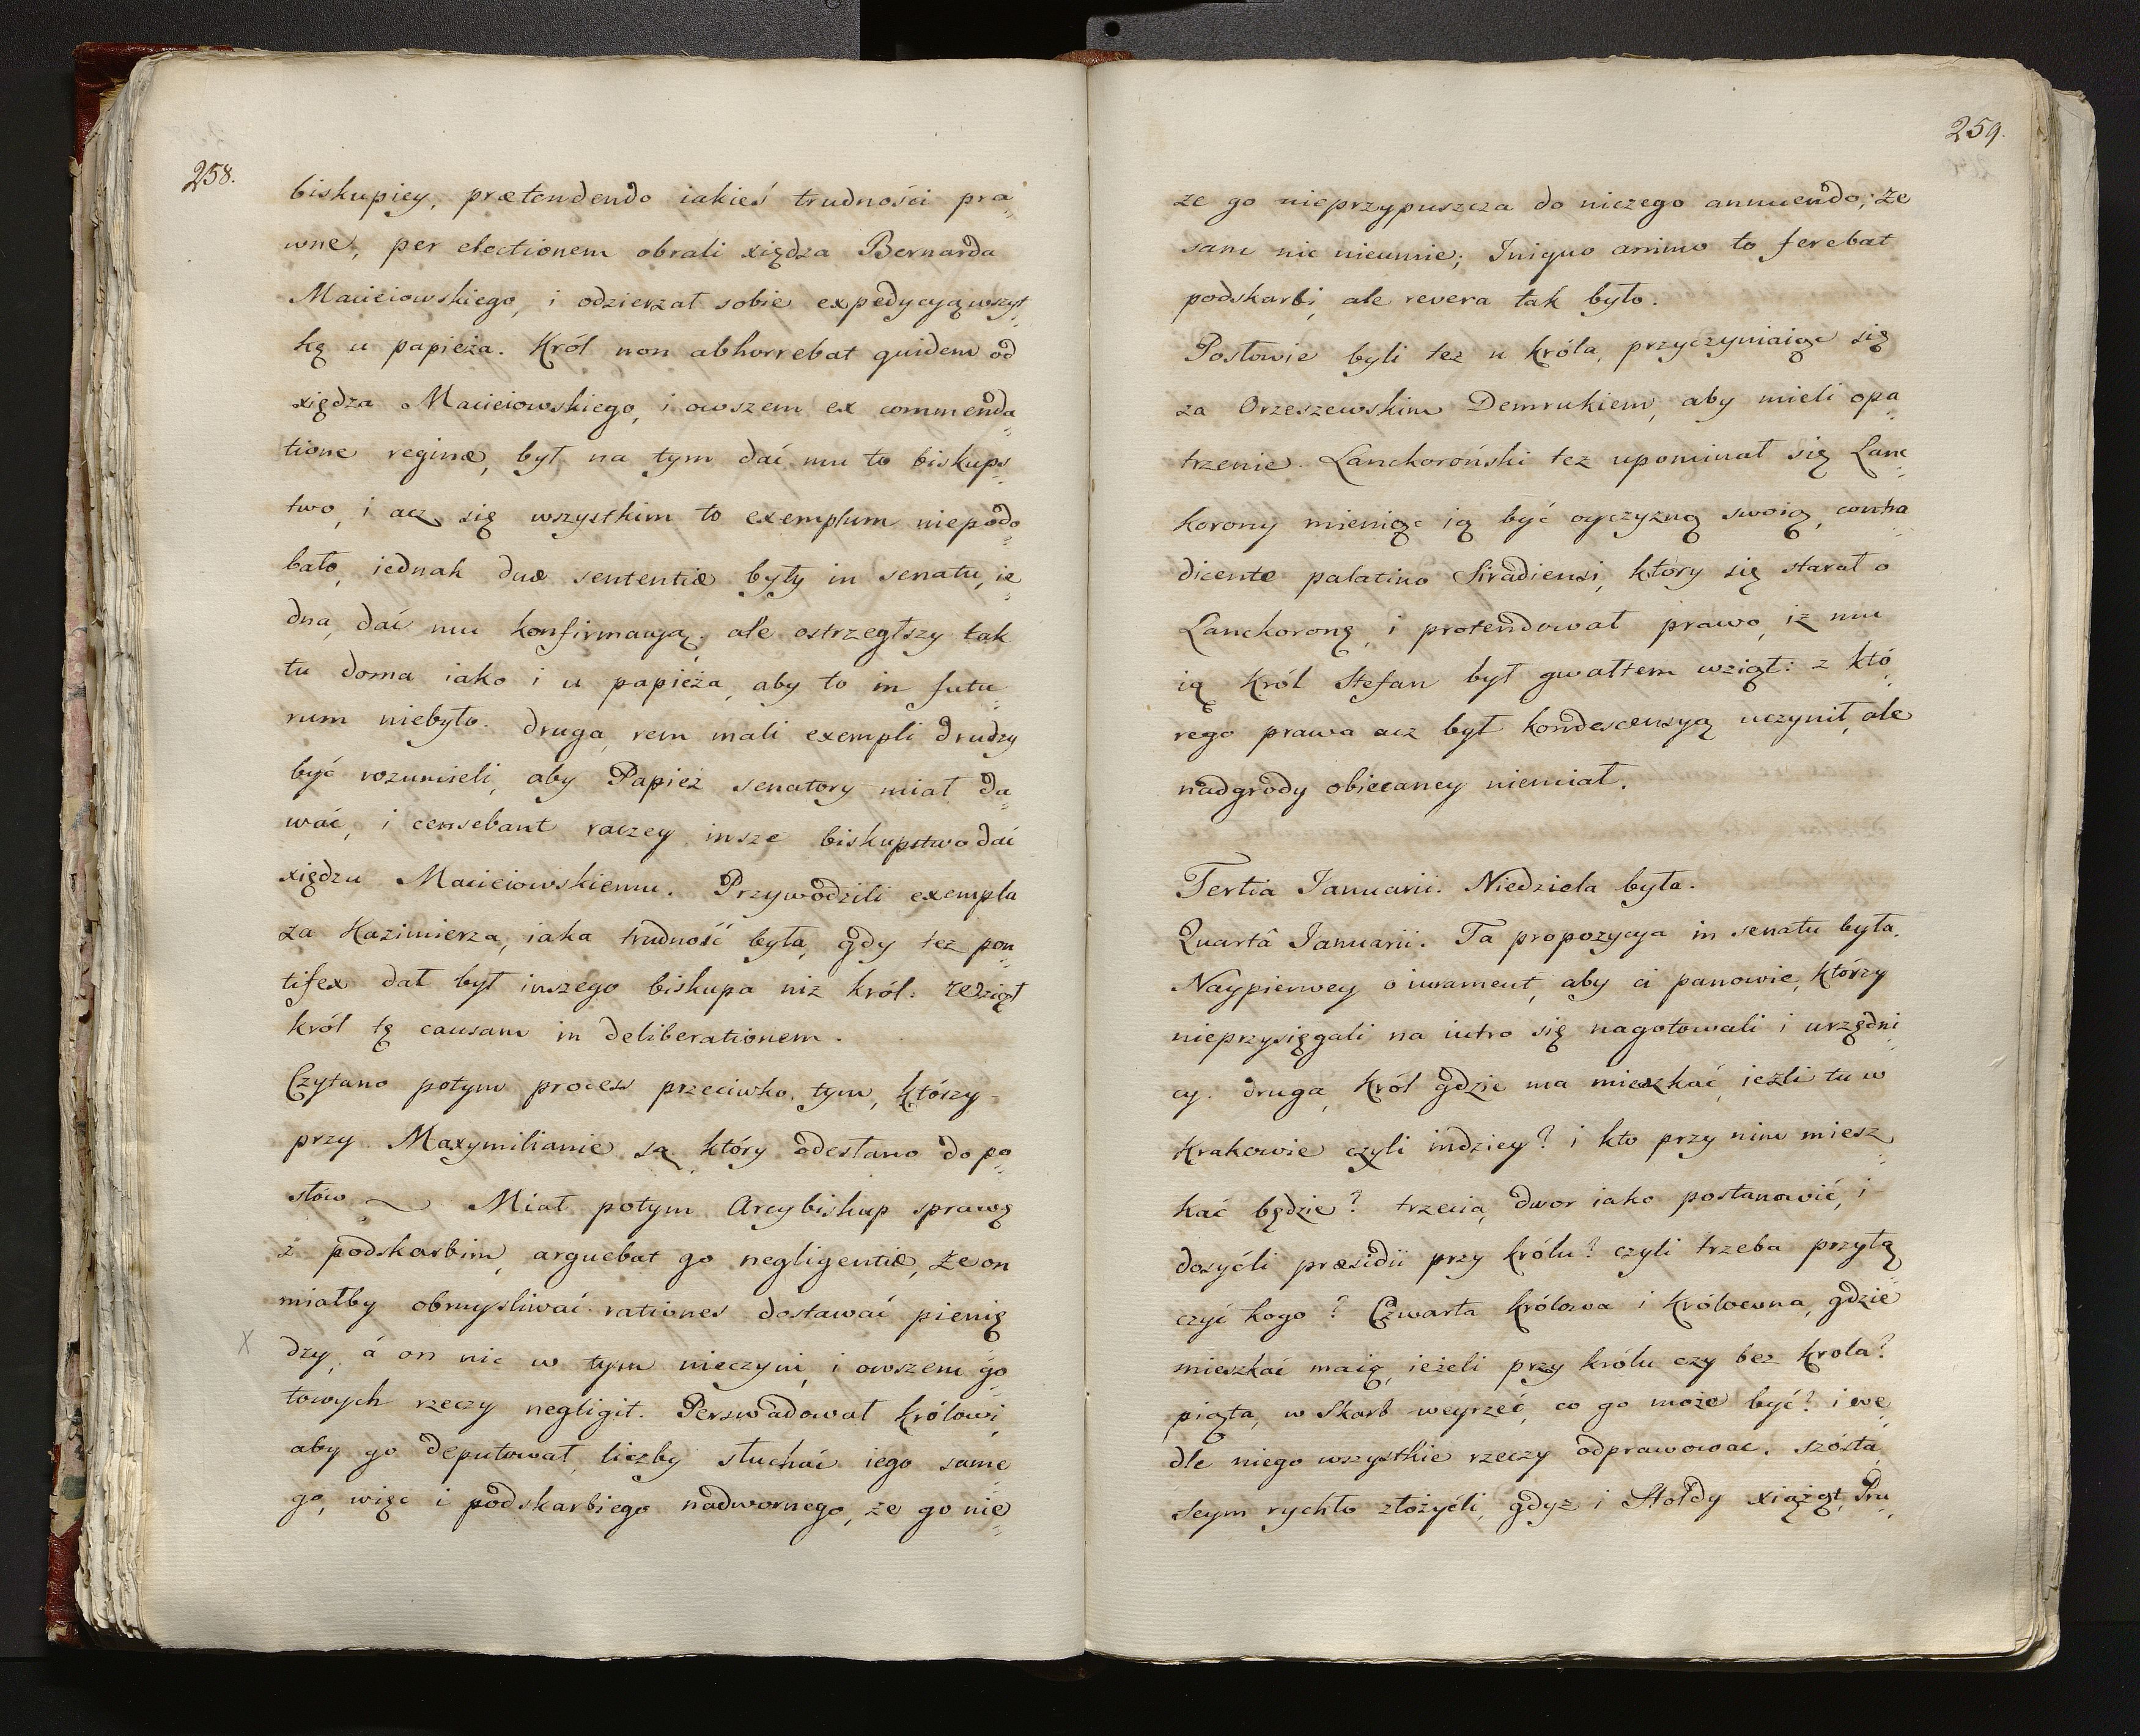 258.
biskupiey, prætendendo iakieś trudności pra„
wne, per electionem obrali xiędza Bernarda
Macieiowskiego, i odzierzał sobie expedycyą wszyt„
ką u papieża. Król non abhorrebat quidem od
xiędza Macieiowskiego, i owszem ex commenda„
tione reginæ, był na tym dać mu to biskups„
two, i acz się wszystkim to exemplum niepodo„
bało, iednak duæ sententiæ były in senatu, ie„
dna, dać mu konfirmacyą, ale ostrzegłszy tak
tu doma iako i u papieża, aby to in futu„
rum niebyło. druga, rem mali exempli drudzy
być rozumieli, aby Papież senatory miał da„
wać, i censebant raczey insze biskupstwo dać
xiędzu Macieiowskiemu. Przywodzili exempla
za Kazimierza, iaka trudność była, gdy też pon„
tifex dał był inszego biskupa niż król. Wziął
król tę causam in deliberationem.
Czytano potym process przeciwko tym, którzy
przy Maxymilianie są, który odesłano do po„
słów ~ Miał potym Arcybiskup sprawę
z podskarbim, arguebat go negligentiæ, że on
miałby obmyśliwać rationes dostawać pienię„
dzy, á on nic w tym nieczyni, i owszem go„
towych rzeczy negligit. Perswadował królowi,
aby go deputował, liczby słuchać iego same„
go, więc i podskarbiego nadwornego, że go nie„
259.
że go nieprzypuszcza do niczego annuendo; że
sam nic nieumie; Iniquo animo to ferebat
podskarbi, ale revera tak było.
Posłowie byli też u króla, przyczyniaiąc się
za Orzeszewskim Demrukiem, aby mieli opa„
trzenie. Lanckoroński też upominał się Lanc„
korony mieniąc ią być oyczyzną swoią, contra„
dicente palatino Siradiensi, który się starał o
Lanckoronę, i pretendował prawo, iż mu
ią Król Stefan był gwałtem wziął: z któ„
rego prawa acz był kondescensyą uczynił, ale
nadgrody obiecaney niemiał.
Tertia Ianuarii. Niedziela była.
Quartâ Ianuarii. Ta propozycya in senatu była.
Naypierwey o iurament, aby ci panowie, którzy
nieprzysięgali na iutro się nagotowali i urzędni„
cy. druga, Król gdzie ma mieszkać, ieżli tu w
Krakowie czyli indziey? i kto przy nim miesz„
kać będzie? trzecia, dwor iako postanowić, i
dosyćli præsidii przy królu? czyli trzeba przyłą„
czyć kogo? Czwarta królowa i Królewna, gdzie
mieszkać maią, ieżeli przy królu czy bez Krola?
piąta, w Skarb weyrzeć, co go może być? i we„
dle niego wszystkie rzeczy odprawować. szósta,
seym rychło złożyćli, gdyż i Hołdy xiążąt, Pru„